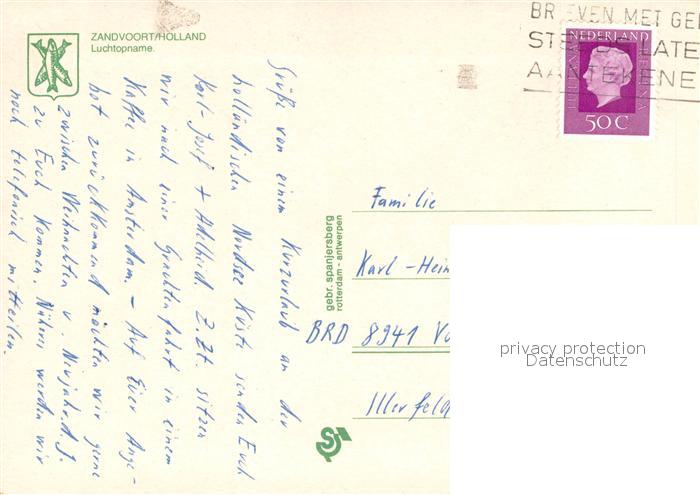 ZANDVOORT/HOLLAND
Luchtopname.
BRIEVEN MET GEL
STEEDS LATE
AANTEKENE
NEDERLAND
JULIANA REGINA
50 C
Grüße von einem Kurzurlaub an der
holländischen Nordsee Küste senden Euch
Karl-Josef + Adelheid. Z. Zt. sitzen
wir nach einer Grachtenfahrt in einem
Kaffee in Amsterdam. – Auf Euer Ange-
bot zurückkommend möchten wir gerne
zwischen Weihnachten u. Neujahr d. J.
zu Euch kommen. Näheres werden wir
noch telefonisch mitteilen.
gebr. spanjersberg
rotterdam - antwerpen
Familie
Karl-Hein
BRD 8941 Vo
Illerfeld
privacy protection
Datenschutz